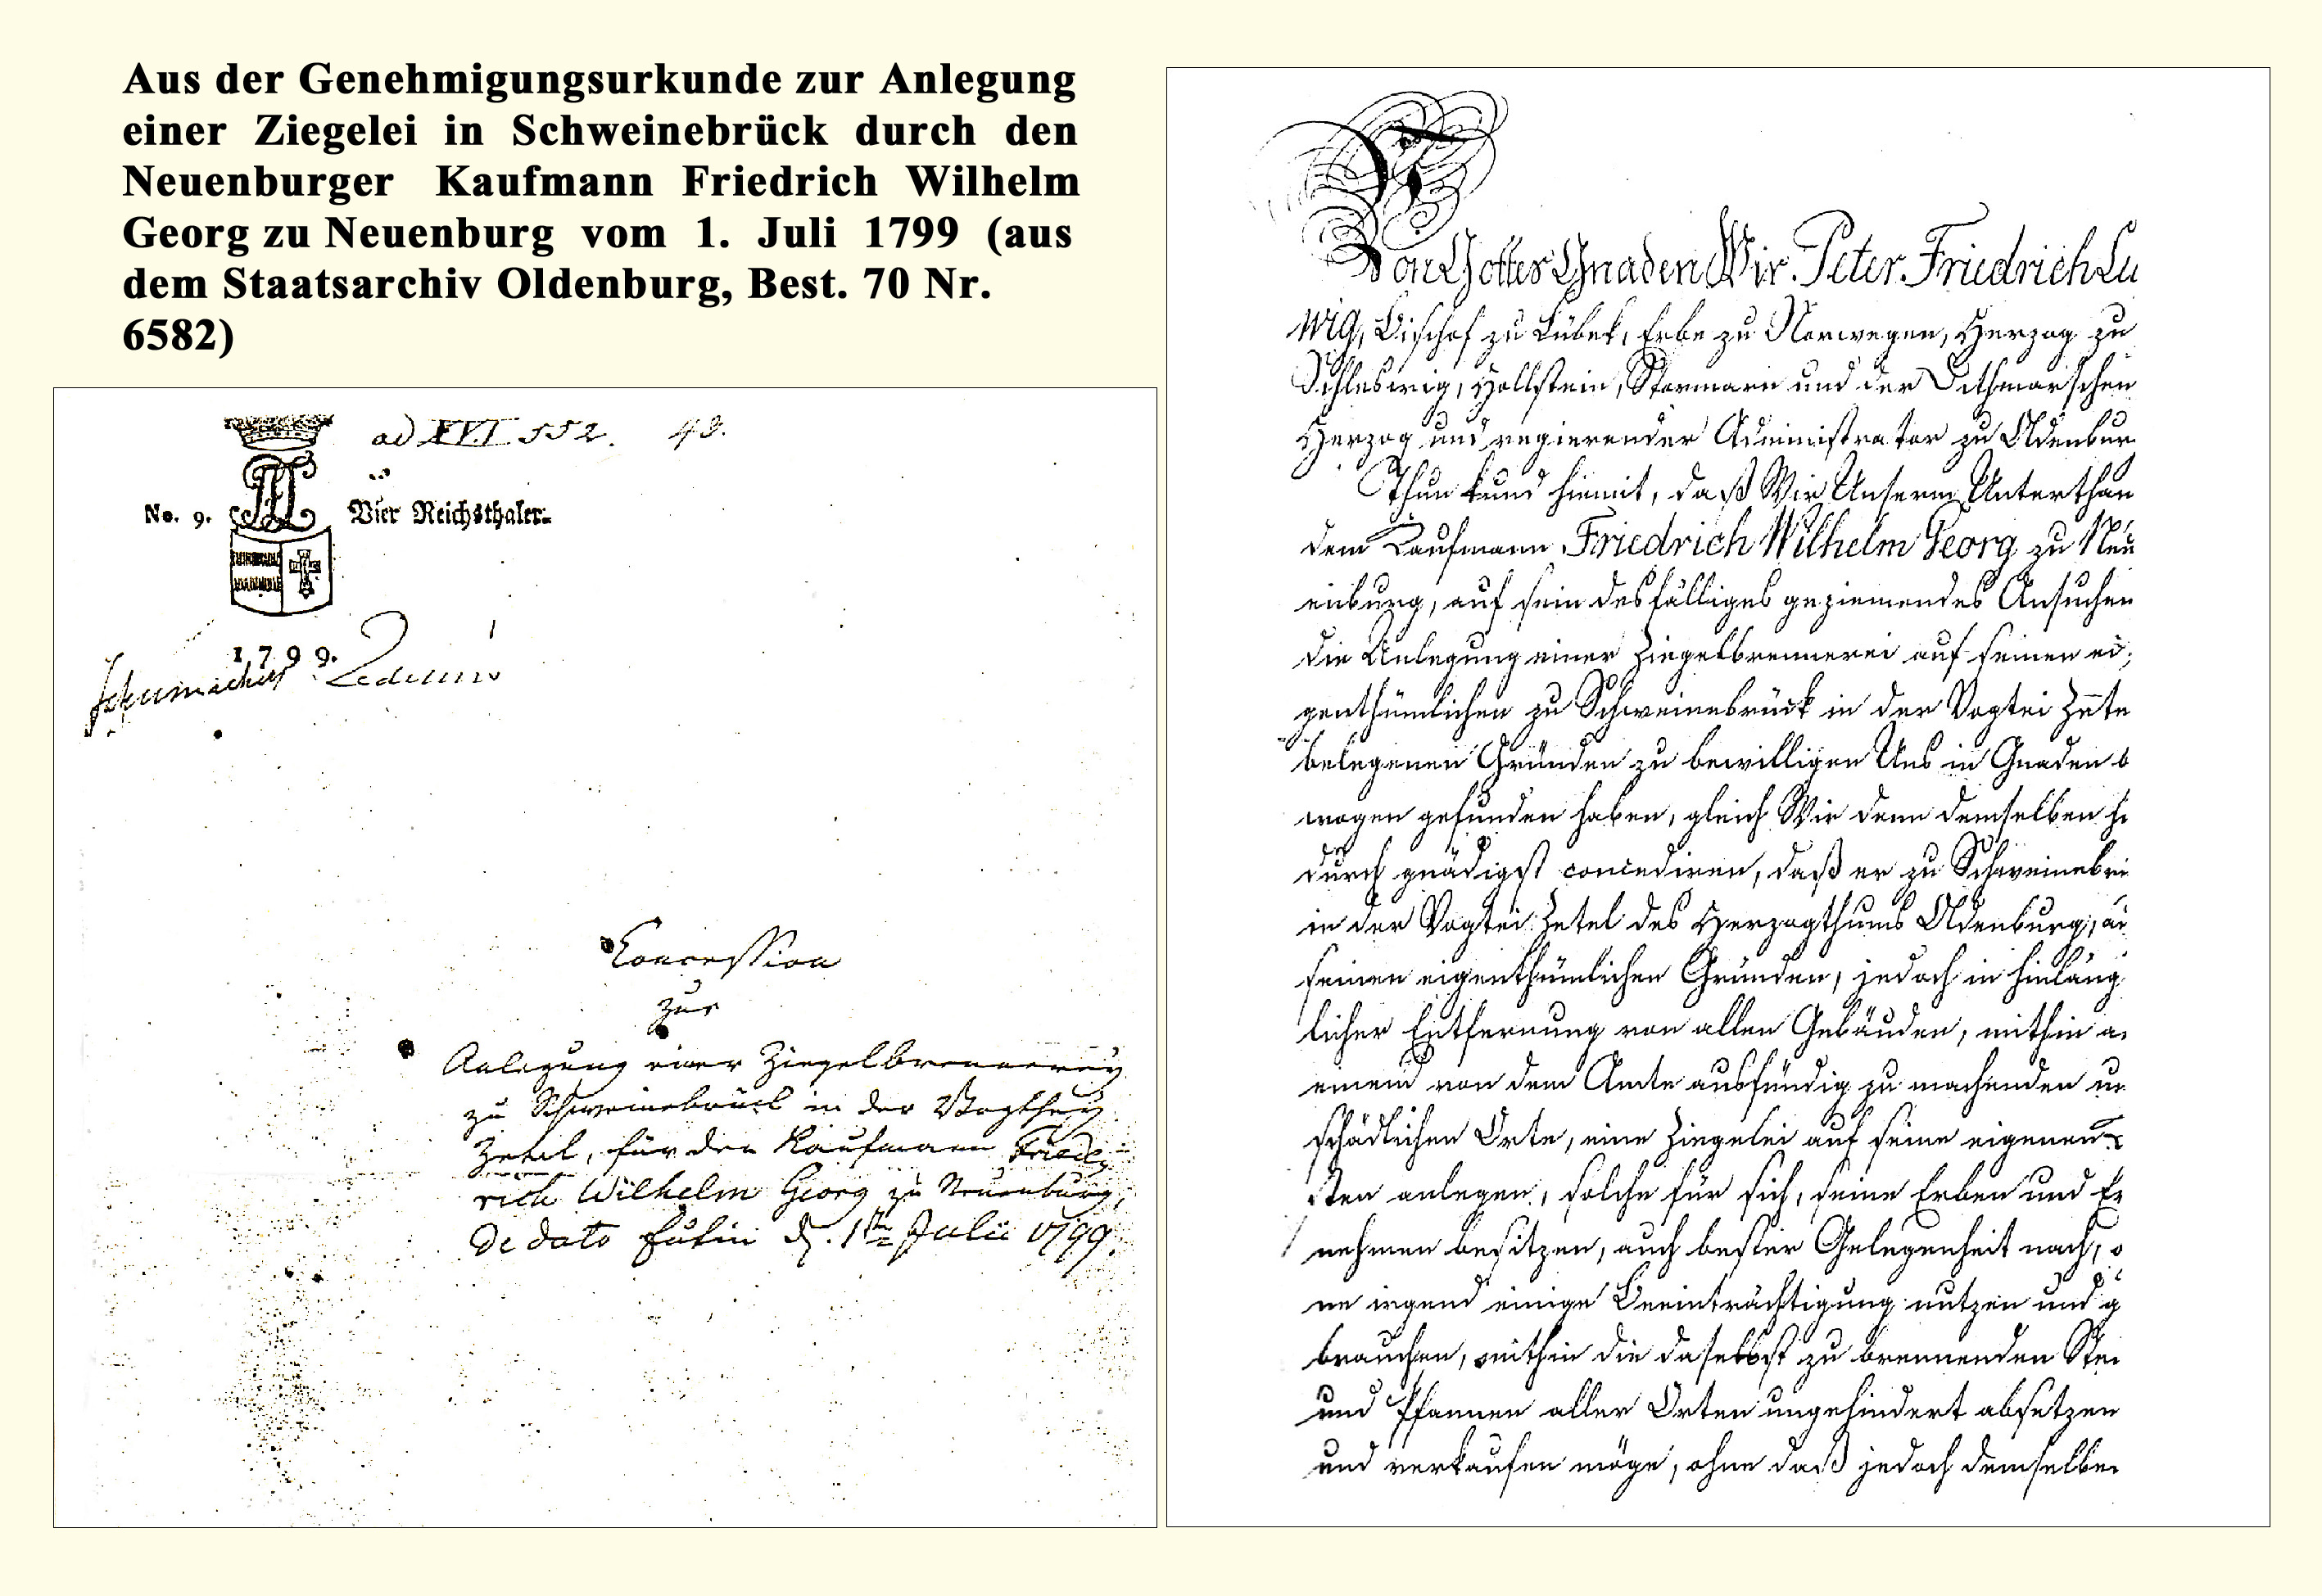 Aus der Genehmigungsurkunde zur Anlegung
einer Ziegelei in Schweinebrück durch den
Neuenburger Kaufmann Friedrich Wilhelm
Georg zu Neuenburg vom 1. Juli 1799 (aus
dem Staatsarchiv Oldenburg, Best. 70 Nr.
6582)
ad XVI 552. 43.
No. 9. Vier Reichsthaler.
1799.
Concession
zur
Anlegung einer Ziegelbrennerey
zu Schweinebrück in der Vogthey
Zetel, für den Kaufmann Fried-
rich Wilhelm Georg zu Neuenburg,
De dato Eutin d. 1ten Julii 1799.
Von Gottes Gnaden Wir Peter Friedrich Lu
wig, Bischof zu Lübek, Erbe zu Norwegen, Herzog zu
Schleswig, Hollstein, Stormarn und der Dithmarschen
Herzog und regierender Administrator zu Oldenbur
Thun kund hiemit, daß Wir Unserm Unterthan
dem Kaufmann Friedrich Wilhelm Georg zu Neu
enburg, auf sein desfälliges geziemendes Ansuchen
die Anlegung einer Ziegelbrennerei auf seinen ei,
genthümlichen zu Schweinebrück in der Vogtei Zete
belegenen Gründen zu bewilligen Uns in Gnaden b
wogen gefunden haben, gleich Wir denn demselben hi
durch gnädigst concediren, daß er zu Schweinebrü
in der Vogtei Zetel des Herzogthums Oldenburg, au
seinen eigenthümlichen Gründen, jedoch in hinläng
licher Entfernung von allen Gebäuden, mithin a
einem von dem Amte ausfündig zu machenden un
schädlichen Orte, eine Ziegelei auf seine eigenen
sten anlegen, solche für sich, seine Erben und Er
nehmen besitzen, auch bester Gelegenheit nach, o
ne irgend einige Beeinträchtigung nutzen und g
brauchen, mithin die daselbst zu brennenden Stei
und Pfannen aller Orten ungehindert absetzen
und verkaufen möge, ohne daß jedoch demselben